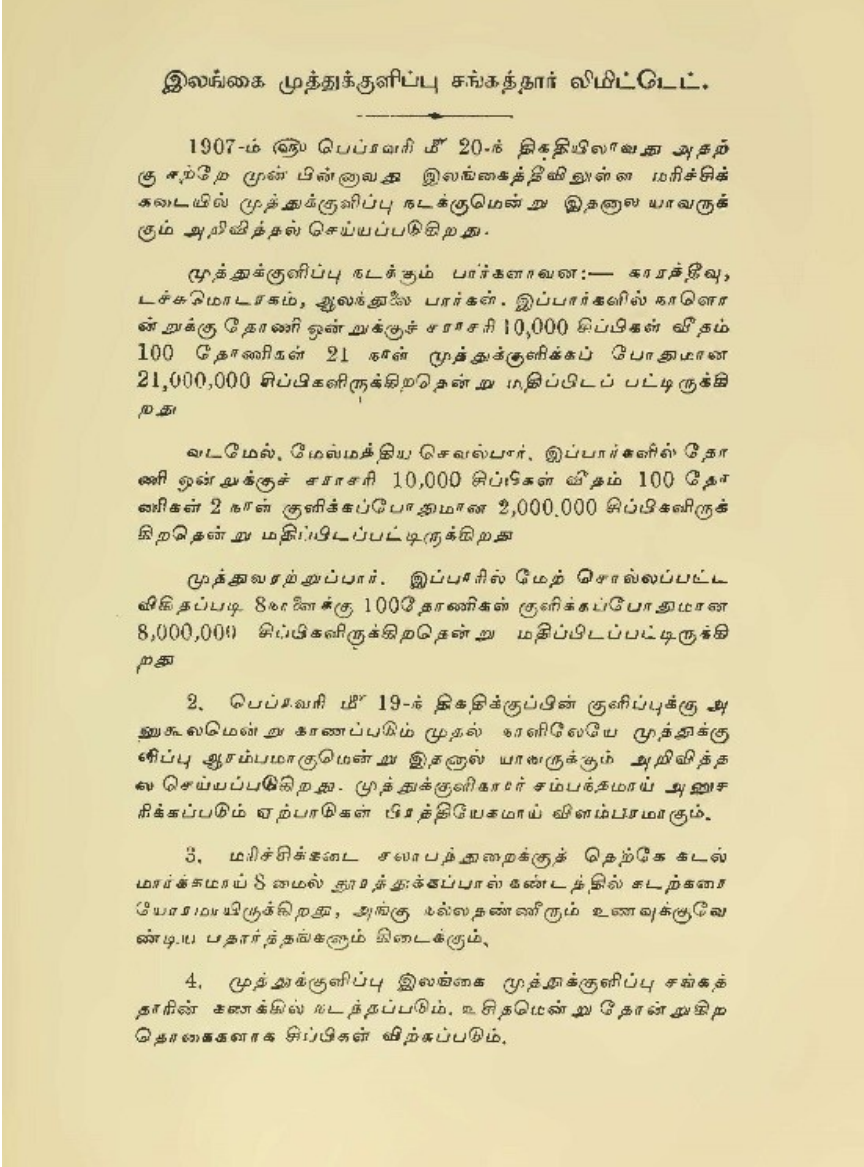 இலங்கை முத்துக்குளிப்பு சங்கத்தார் லிமிட்டெட்.
1907-ம் ௵ பெப்ரவரி மீ 20-ந் திகதியிலாவது அதற்
கு சற்றே முன் பின்னாவது இலங்கைத்தீவிலுள்ள மரிச்சிக்
கடையில் முத்துக்குளிப்பு நடக்குமென்று இதனால் யாவருக்
கும் அறிவித்தல் செய்யப்படுகிறது.
முத்துக்குளிப்பு நடக்கும் பார்களாவன:— காரத்தீவு,
டச்சுமொடரகம், ஆலந்துறை பார்கள். இப்பார்களில் நாளொ
ன்றுக்கு தோணி ஒன்றுக்குச் சராசரி 10,000 சிப்பிகள் வீதம்
100 தோணிகள் 21 நாள் முத்துக்குளிக்கப் போதுமான
21,000,000 சிப்பிகளிருக்கிறதென்று மதிப்பிடப் பட்டிருக்கி
றது
வடமேல், மேல்மத்திய செவல்பார். இப்பார்களில் தோ
ணி ஒன்றுக்குச் சராசரி 10,000 சிப்பிகள் வீதம் 100 தோ
ணிகள் 2 நாள் குளிக்கப்போதுமான 2,000,000 சிப்பிகளிருக்
கிறதென்று மதிப்பிடப்பட்டிருக்கிறது
முத்துவரற்றுப்பார். இப்பாரில் மேற் சொல்லப்பட்ட
விகிதப்படி 8நாளைக்கு 100தோணிகள் குளிக்கப்போதுமான
8,000,000 சிப்பிகளிருக்கிறதென்று மதிப்பிடப்பட்டிருக்கி
றது
2. பெப்ரவரி மீ 19-ந் திகதிக்குப்பின் குளிப்புக்கு அ
னுகூலமென்று காணப்படும் முதல் நாளிலேயே முத்துக்கு
ளிப்பு ஆரம்பமாகுமென்று இதனால் யாவருக்கும் அறிவித்த
ல் செய்யப்படுகிறது. முத்துக்குளிகாரர் சம்பந்தமாய் அனுச
ரிக்கப்படும் ஏற்பாடுகள் பிரத்தியேகமாய் விளம்பரமாகும்.
3. மரிச்சிக்கடை சலாபத்துறைக்குத் தெற்கே கடல்
மார்க்கமாய் 8 மைல் தூரத்துக்கப்பால் கண்டத்தில் கடற்கரை
யோரமாயிருக்கிறது, அங்கு நல்லதண்ணீரும் உணவுக்குவே
ண்டிய பதார்த்தங்களும் கிடைக்கும்.
4. முத்துக்குளிப்பு இலங்கை முத்துக்குளிப்பு சங்கத்
தாரின் கணக்கில் நடத்தப்படும். உசிதமென்று தோன்றுகிற
தொகைகளாக சிப்பிகள் விற்கப்படும்.